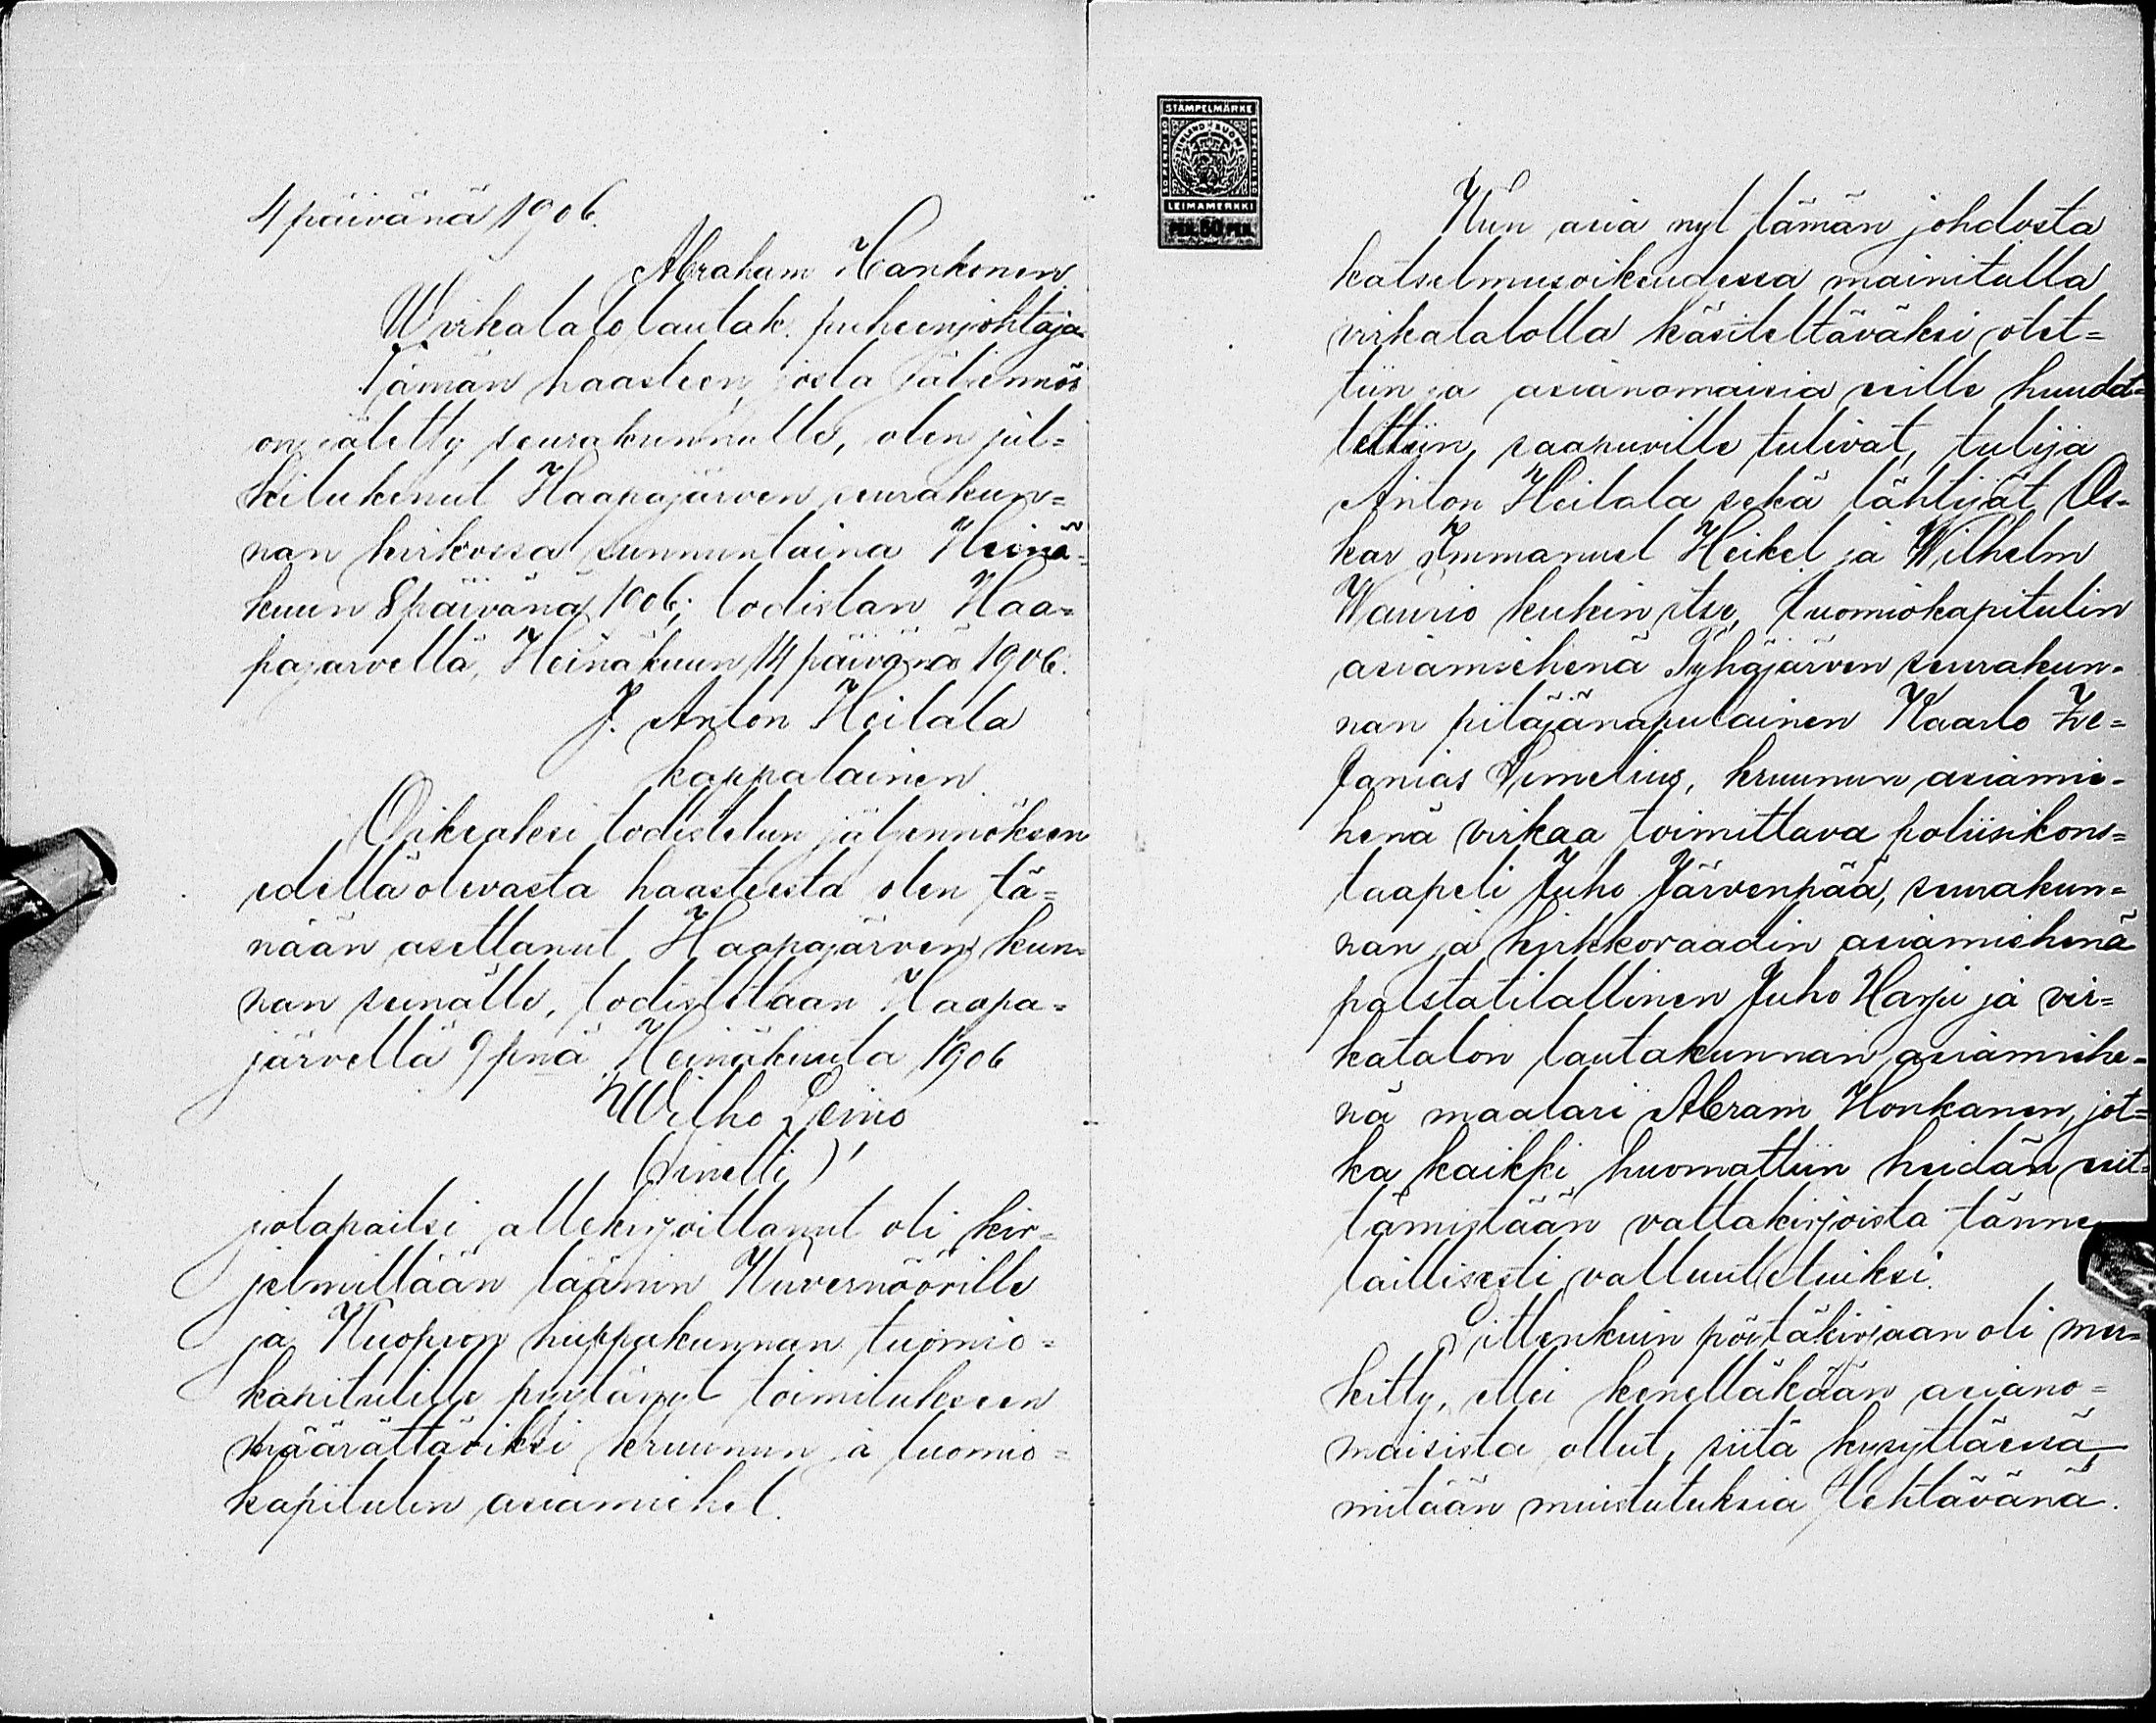 4 päivänä 1906.
Abraham Honkonen
Wirkatalolautak. puheenjohtaja.
Tämän haasteen, josta jäljennös
on jätetty seurakunnalle, olen jul=
kilukenut Haapajärven seurakun=
nan kirkossa sunnuntaina Heinä=
kuun 8 päivänä 1906; todistan Haa=
pajärvellä, Heinäkuun 14 päivänä 1906.
J. Anton Heilala
kappalainen.
Oikeaksi todistetun jäljennöksen
edellä olevasta haasteesta olen tä=
nään asettanut Haapajärven kun=
nan seinälle, todistetaan Haapa=
järvellä 9 pnä Heinäkuuta 1906
Wilho Leino
(sinetti)
jotapaitsi allekirjoittanut oli kir=
jelmillään läänin Kuvernöörille
ja Kuopion hiippakunnan tuomio=
kapitulille pyytänyt toimitukseen
määrättäviksi kruunun ja tuomio=
kapitulin asiamiehet.
STÄMPELMÄRKE
FINLAND SUOMI
LEIMAMERKKI
PEN. 50 PEN.
Kun asia nyt tämän johdosta
katselmusoikeudessa mainitulla
virkatalolla käsiteltäväksi otet=
tiin ja asianomaisia esille huudat=
tettiin, saapuville tulivat, tulija
Anton Heilala sekä lähtijät Os=
kar Immanuel Heikel ja Wilhelm
Waurio kukin itse, Tuomiokapitulin
asiamiehenä Pyhäjärven seurakun=
nan pitäjänapulainen Kaarlo Ze=
fanias Simelius, kruunun asiamie=
henä virkaa toimittava poliisikons=
taapeli Juho Järvenpää, seurakun=
nan ja kirkkoraadin asiamiehenä
palstatilallinen Juho Harju ja vir=
katalon lautakunnan asiamiehe=
nä maalari Abram Honkanen, jot=
ka kaikki huomattiin heidän esit=
tämistään valtakirjoista tänne
laillisesti valtuutetuiksi.
Sittenkuin pöytäkirjaan oli mer=
kitty, ettei kenelläkään asiano=
maisista ollut, siitä kysyttäessä,
mitään muistutuksia tehtävänä.